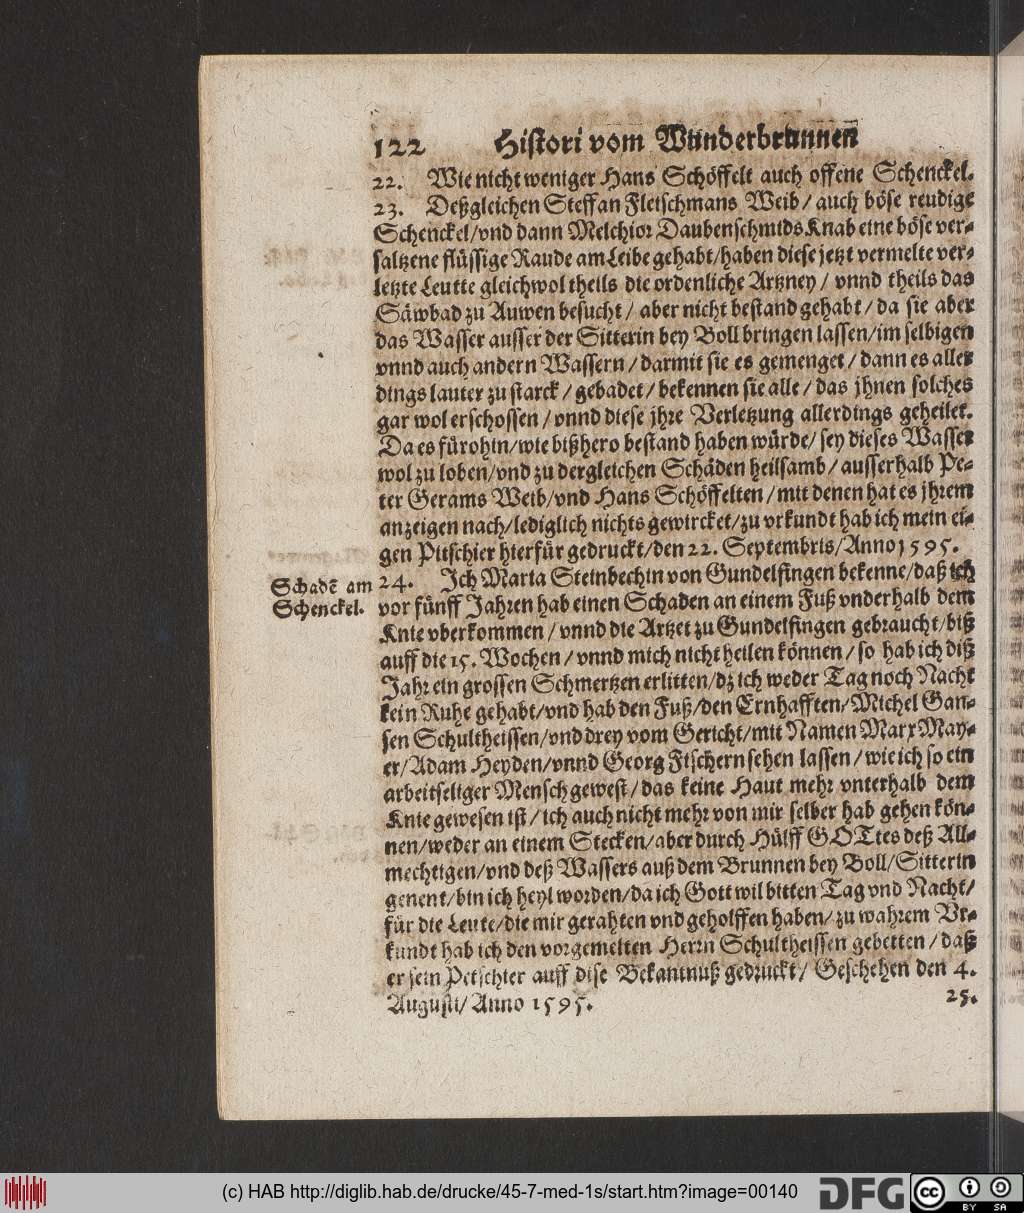 122 Histori vom Wunderbrunnen
22. Wie nicht weniger Hans Schöffelt auch offene Schenckel.
23. Deßgleichen Steffan Fleischmans Weib / auch böse reudige
Schenckel/vnd dann Melchior Daubenschmids Knab eine böse ver-
saltzene flüssige Raude am Leibe gehabt/haben diese jetzt vermelte ver-
letzte Leutte gleichwol theils die ordenliche Artzney / vnnd theils das
Säwbad zu Auwen besucht / aber nicht bestand gehabt / da sie aber
das Wasser ausser der Sitterin bey Boll bringen lassen/im selbigen
vnnd auch andern Wassern / darmit sie es gemenget / dann es aller
dings lauter zu starck / gebadet / bekennen sie alle / das jhnen solches
gar wol erschossen / vnnd diese jhre Verletzung allerdings geheilet.
Da es fürohin/wie bißhero bestand haben würde/ sey dieses Wasser
wol zu loben/vnd zu dergleichen Schäden heilsamb / ausserhalb Pe-
ter Gerams Weib/vnd Hans Schöffelten / mit denen hat es jhrem
anzeigen nach/lediglich nichts gewircket/zu vrkundt hab ich mein ei-
gen Pitschier hierfür gedruckt/den 22. Septembris/Anno 1595.
Schadē am
Schenckel.
24. Ich Maria Steinbechin von Gundelfingen bekenne/daß ich
vor fünff Jahren hab einen Schaden an einem Fuß vnderhalb dem
Knie vberkommen / vnnd die Artzet zu Gundelfingen gebraucht/biß
auff die 15. Wochen / vnnd mich nicht heilen können / so hab ich diß
Jahr ein grossen Schmertzen erlitten/dz ich weder Tag noch Nacht
kein Ruhe gehabt/vnd hab den Fuß/den Ernhafften/Michel Gan-
sen Schultheissen/vnd drey vom Gericht/mit Namen Marx May-
er/Adam Heyden/vnnd Georg Fischern sehen lassen / wie ich so ein
arbeitseliger Mensch gewest / das keine Haut mehr vnterhalb dem
Knie gewesen ist / ich auch nicht mehr von mir selber hab gehen kön-
nen/weder an einem Stecken/aber durch Hülff GOTtes deß All-
mechtigen/vnd deß Wassers auß dem Brunnen bey Boll/Sitterin
genent/bin ich heyl worden/da ich Gott wil bitten Tag vnd Nacht/
für die Leute/die mir gerahten vnd geholffen haben/ zu wahrem Vr-
kundt hab ich den vorgemelten Herrn Schultheissen gebetten / daß
er sein Petschier auff dise Bekantnuß gedruckt / Geschehen den 4.
Augusti/ Anno 1595.
25.
(c) HAB http://diglib.hab.de/drucke/45-7-med-1s/start.htm?image=00140
DFG
cc BY SA